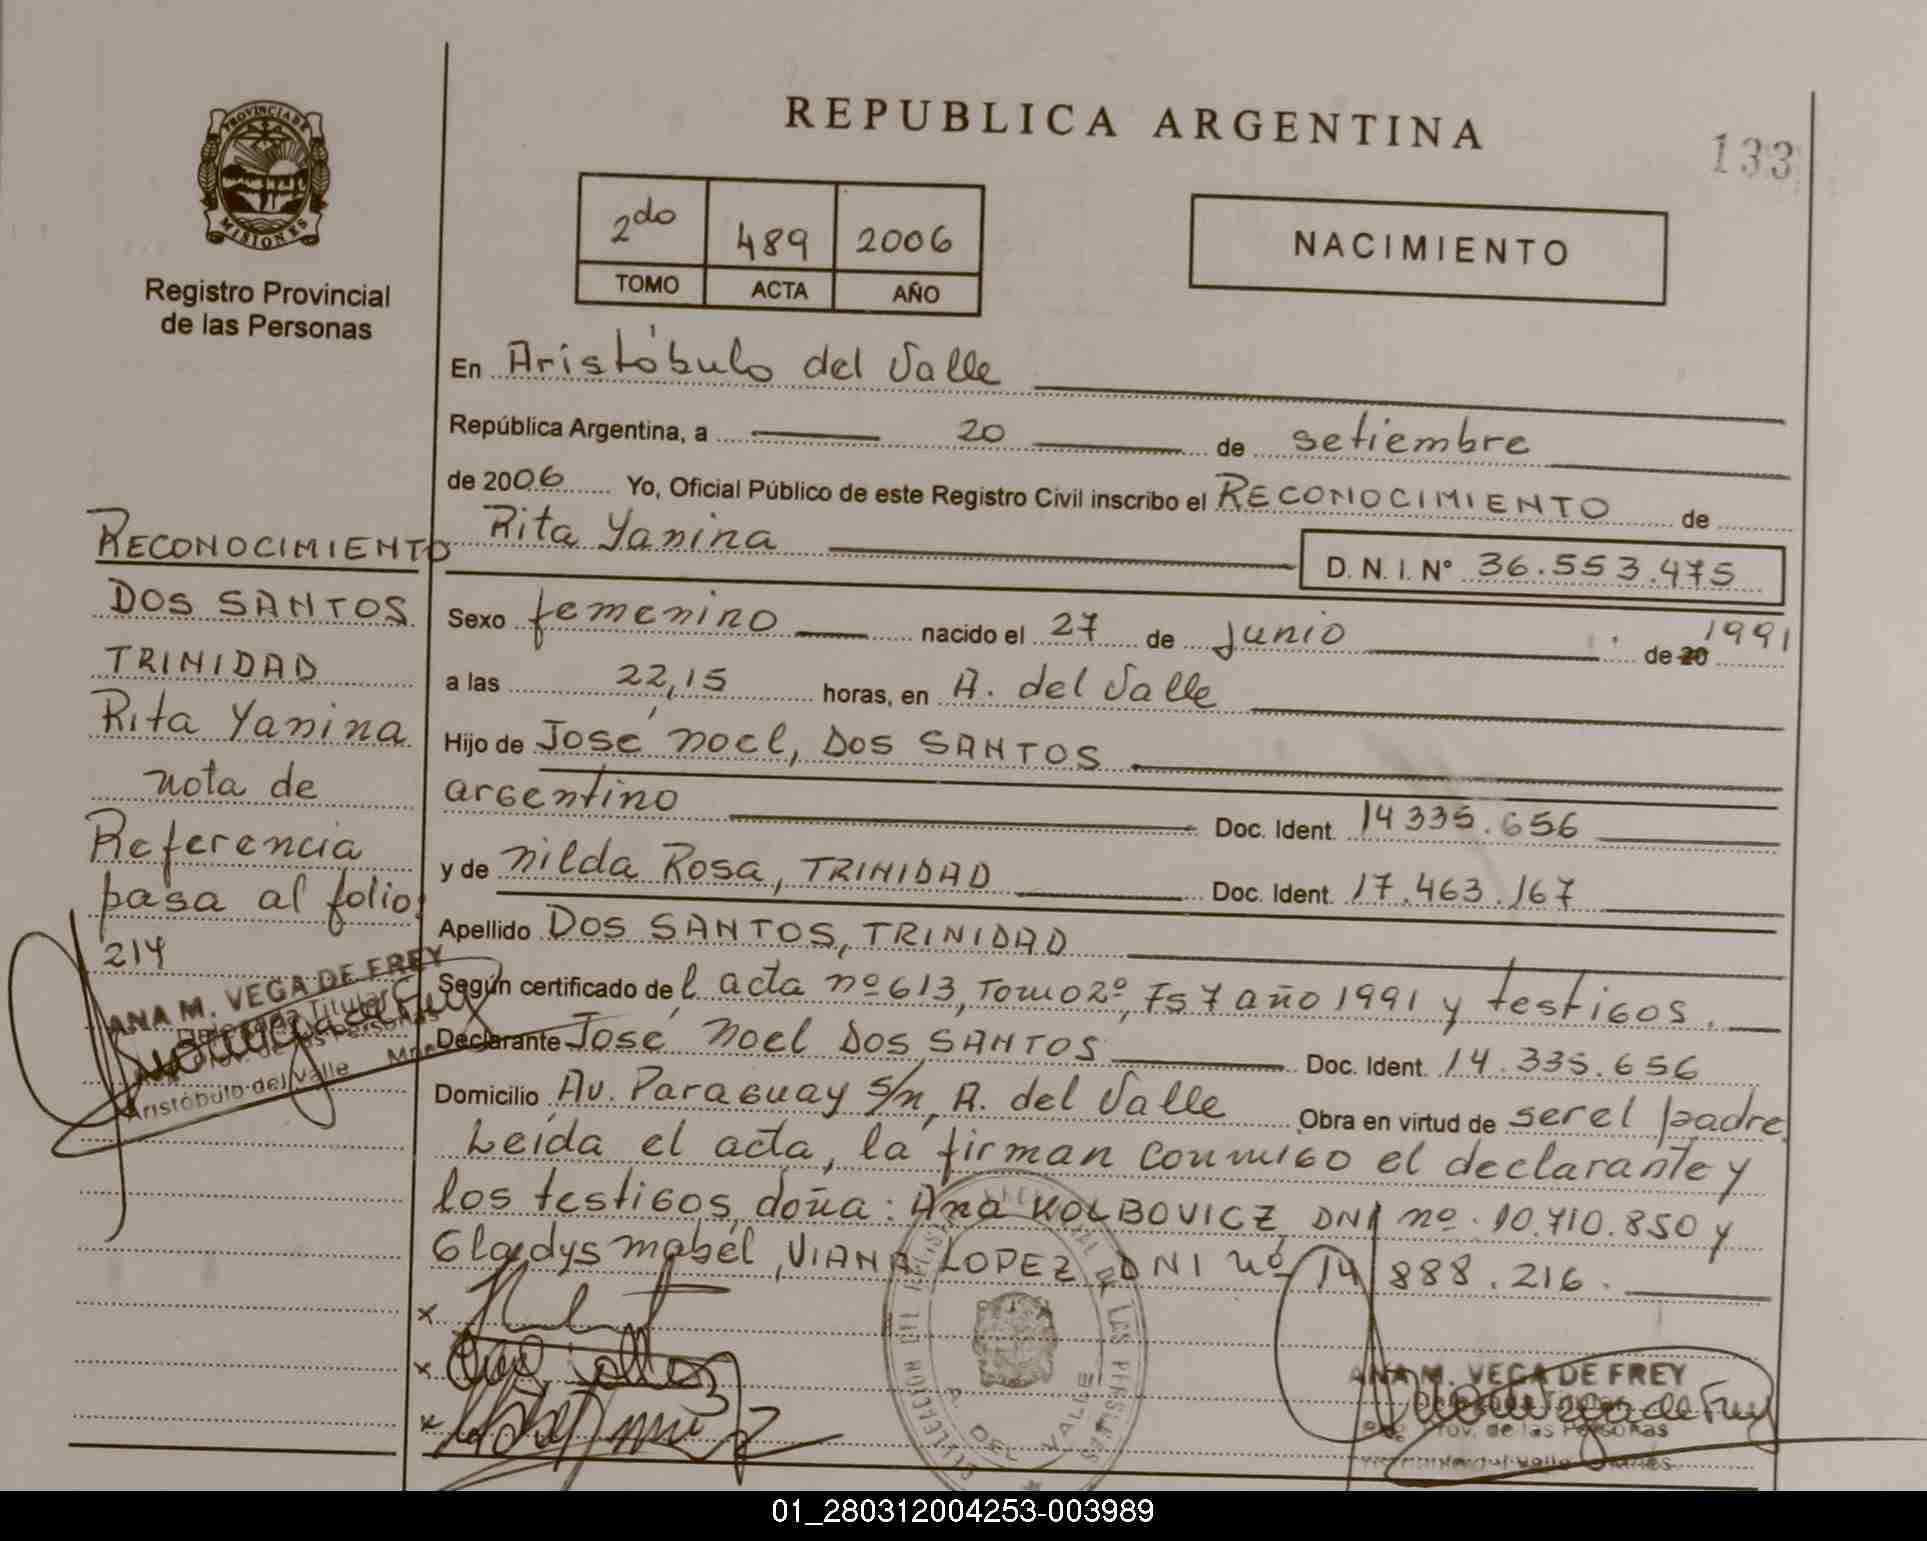 REPUBLICA ARGENTINA
133
PROVINCIA DE
MISIONES
Registro Provincial
de las Personas
2do 489 2006
TOMO ACTA AÑO
NACIMIENTO
En Aristóbulo del Valle
República Argentina, a 20 de setiembre
de 2006 Yo, Oficial Público de este Registro Civil inscribo el RECONOCIMIENTO de
Rita Yanina D. N. I. N° 36.553.475
Sexo femenino nacido el 27 de junio de 20 1991
a las 22,15 horas, en A. del Valle
Hijo de José noel, DOS SANTOS
argentino Doc. Ident. 14335.656
y de nilda Rosa, TRINIDAD Doc. Ident. 17.463.167
Apellido DOS SANTOS, TRINIDAD
Según certificado de l acta nº 613, Tomo 2º, Fs 7 año 1991 y testigos.
Declarante José noel DOS SANTOS Doc. Ident. 14.335.656
Domicilio Av. Paraguay s/n, A. del Valle Obra en virtud de ser el padre
Leída el acta, la firman conmigo el declarante y
los testigos, doña: Ana KOLBOVICZ, DNI nº. 10.710.850 y
Gladys mabel, VIANA LOPEZ, DNI nº 14 888.216.
x
x
x
RECONOCIMIENTO
DOS SANTOS
TRINIDAD
Rita Yanina
nota de
Referencia
pasa al folio:
214
ANA M. VEGA DE FREY
Delegada Titular
Aristóbulo del Valle
A. DEL VALLE
ANA M. VEGA DE FREY
Delegada Titular
Reg. Prov. de las Personas
01_280312004253-003989